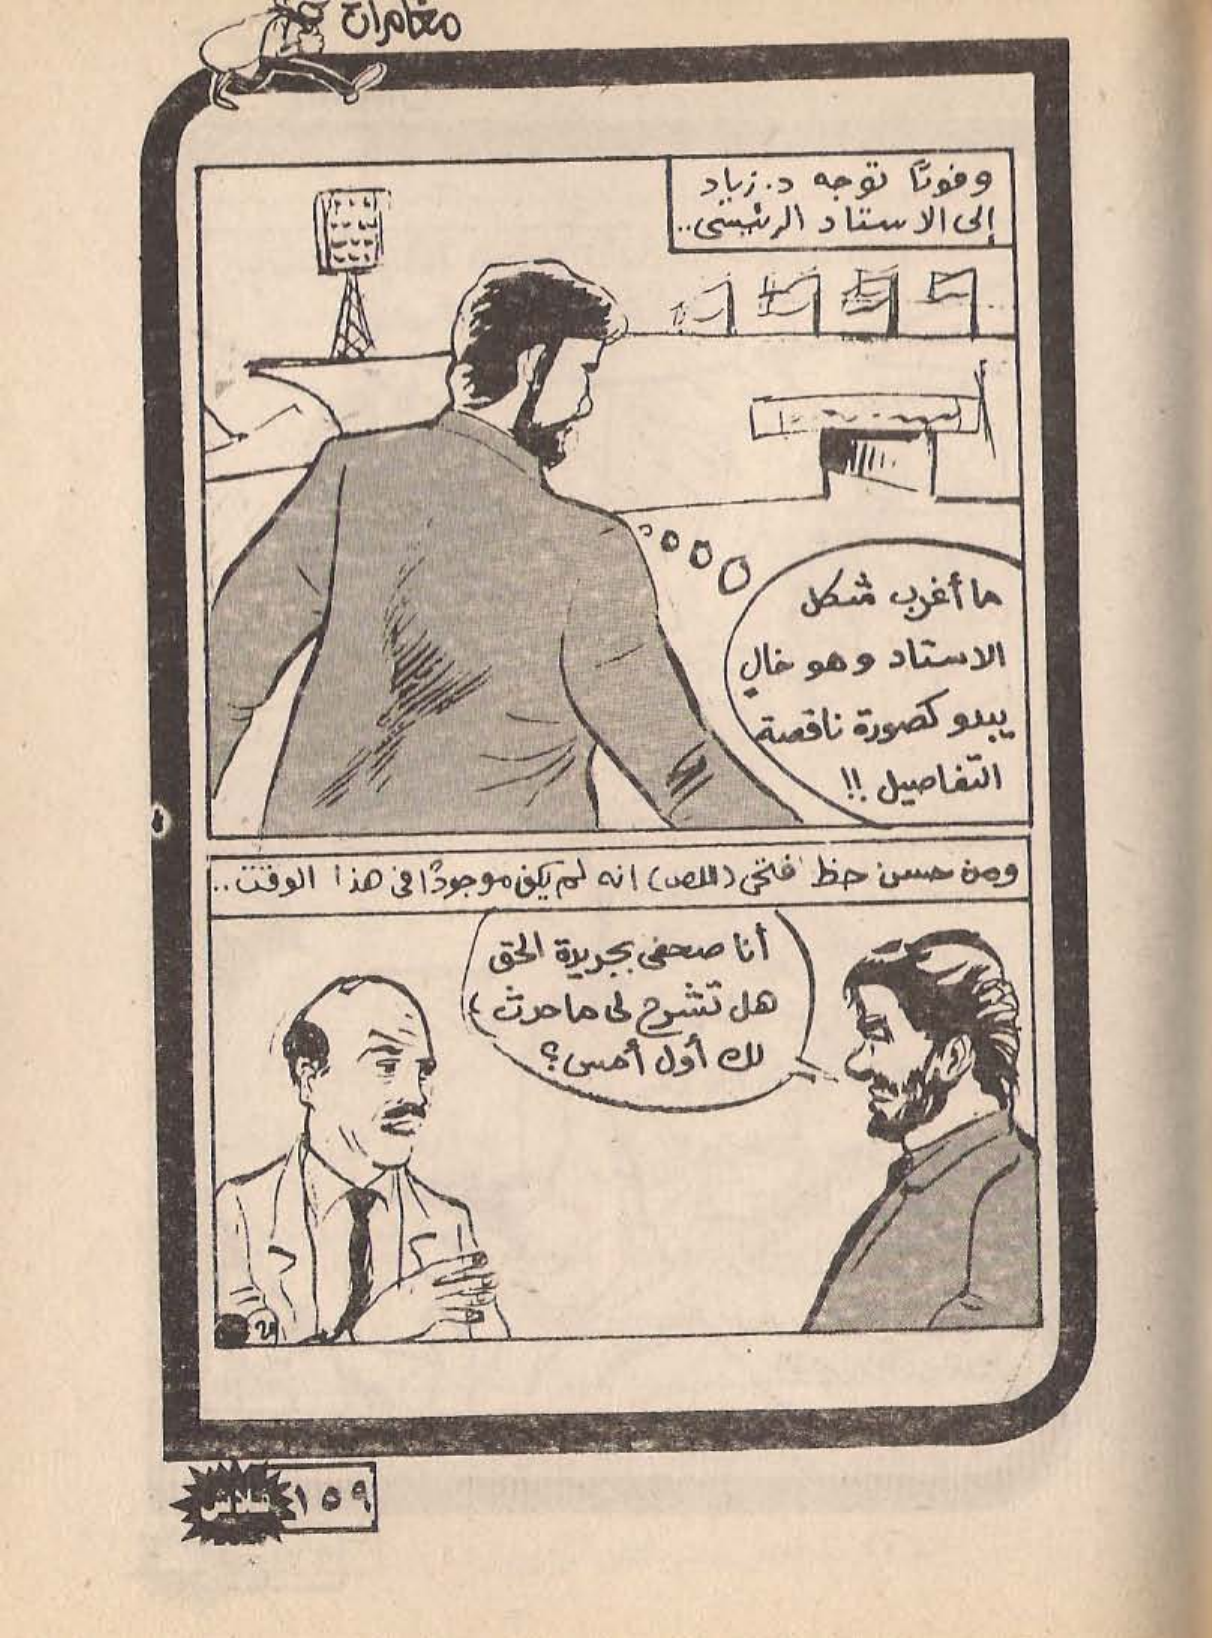 مغامرات
وفورًا توجه د. زياد
إلى الاستاد الرئيسى..
ما أغرب شكل
الاستاد وهو خالٍ
يبدو كصورة ناقصة
التفاصيل !!
ومن حسن حظ فتحى (اللص) انه لم يكن موجودًا فى هذا الوقت..
أنا صحفى بجريدة الحق
هل تشرح لى ما حدث
لك أول أمس؟
١٥٩
فلاش